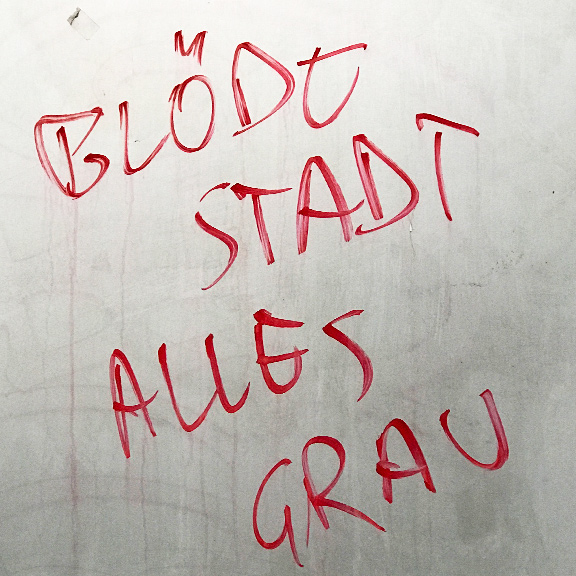 BLÖDE
STADT
ALLES
GRAU